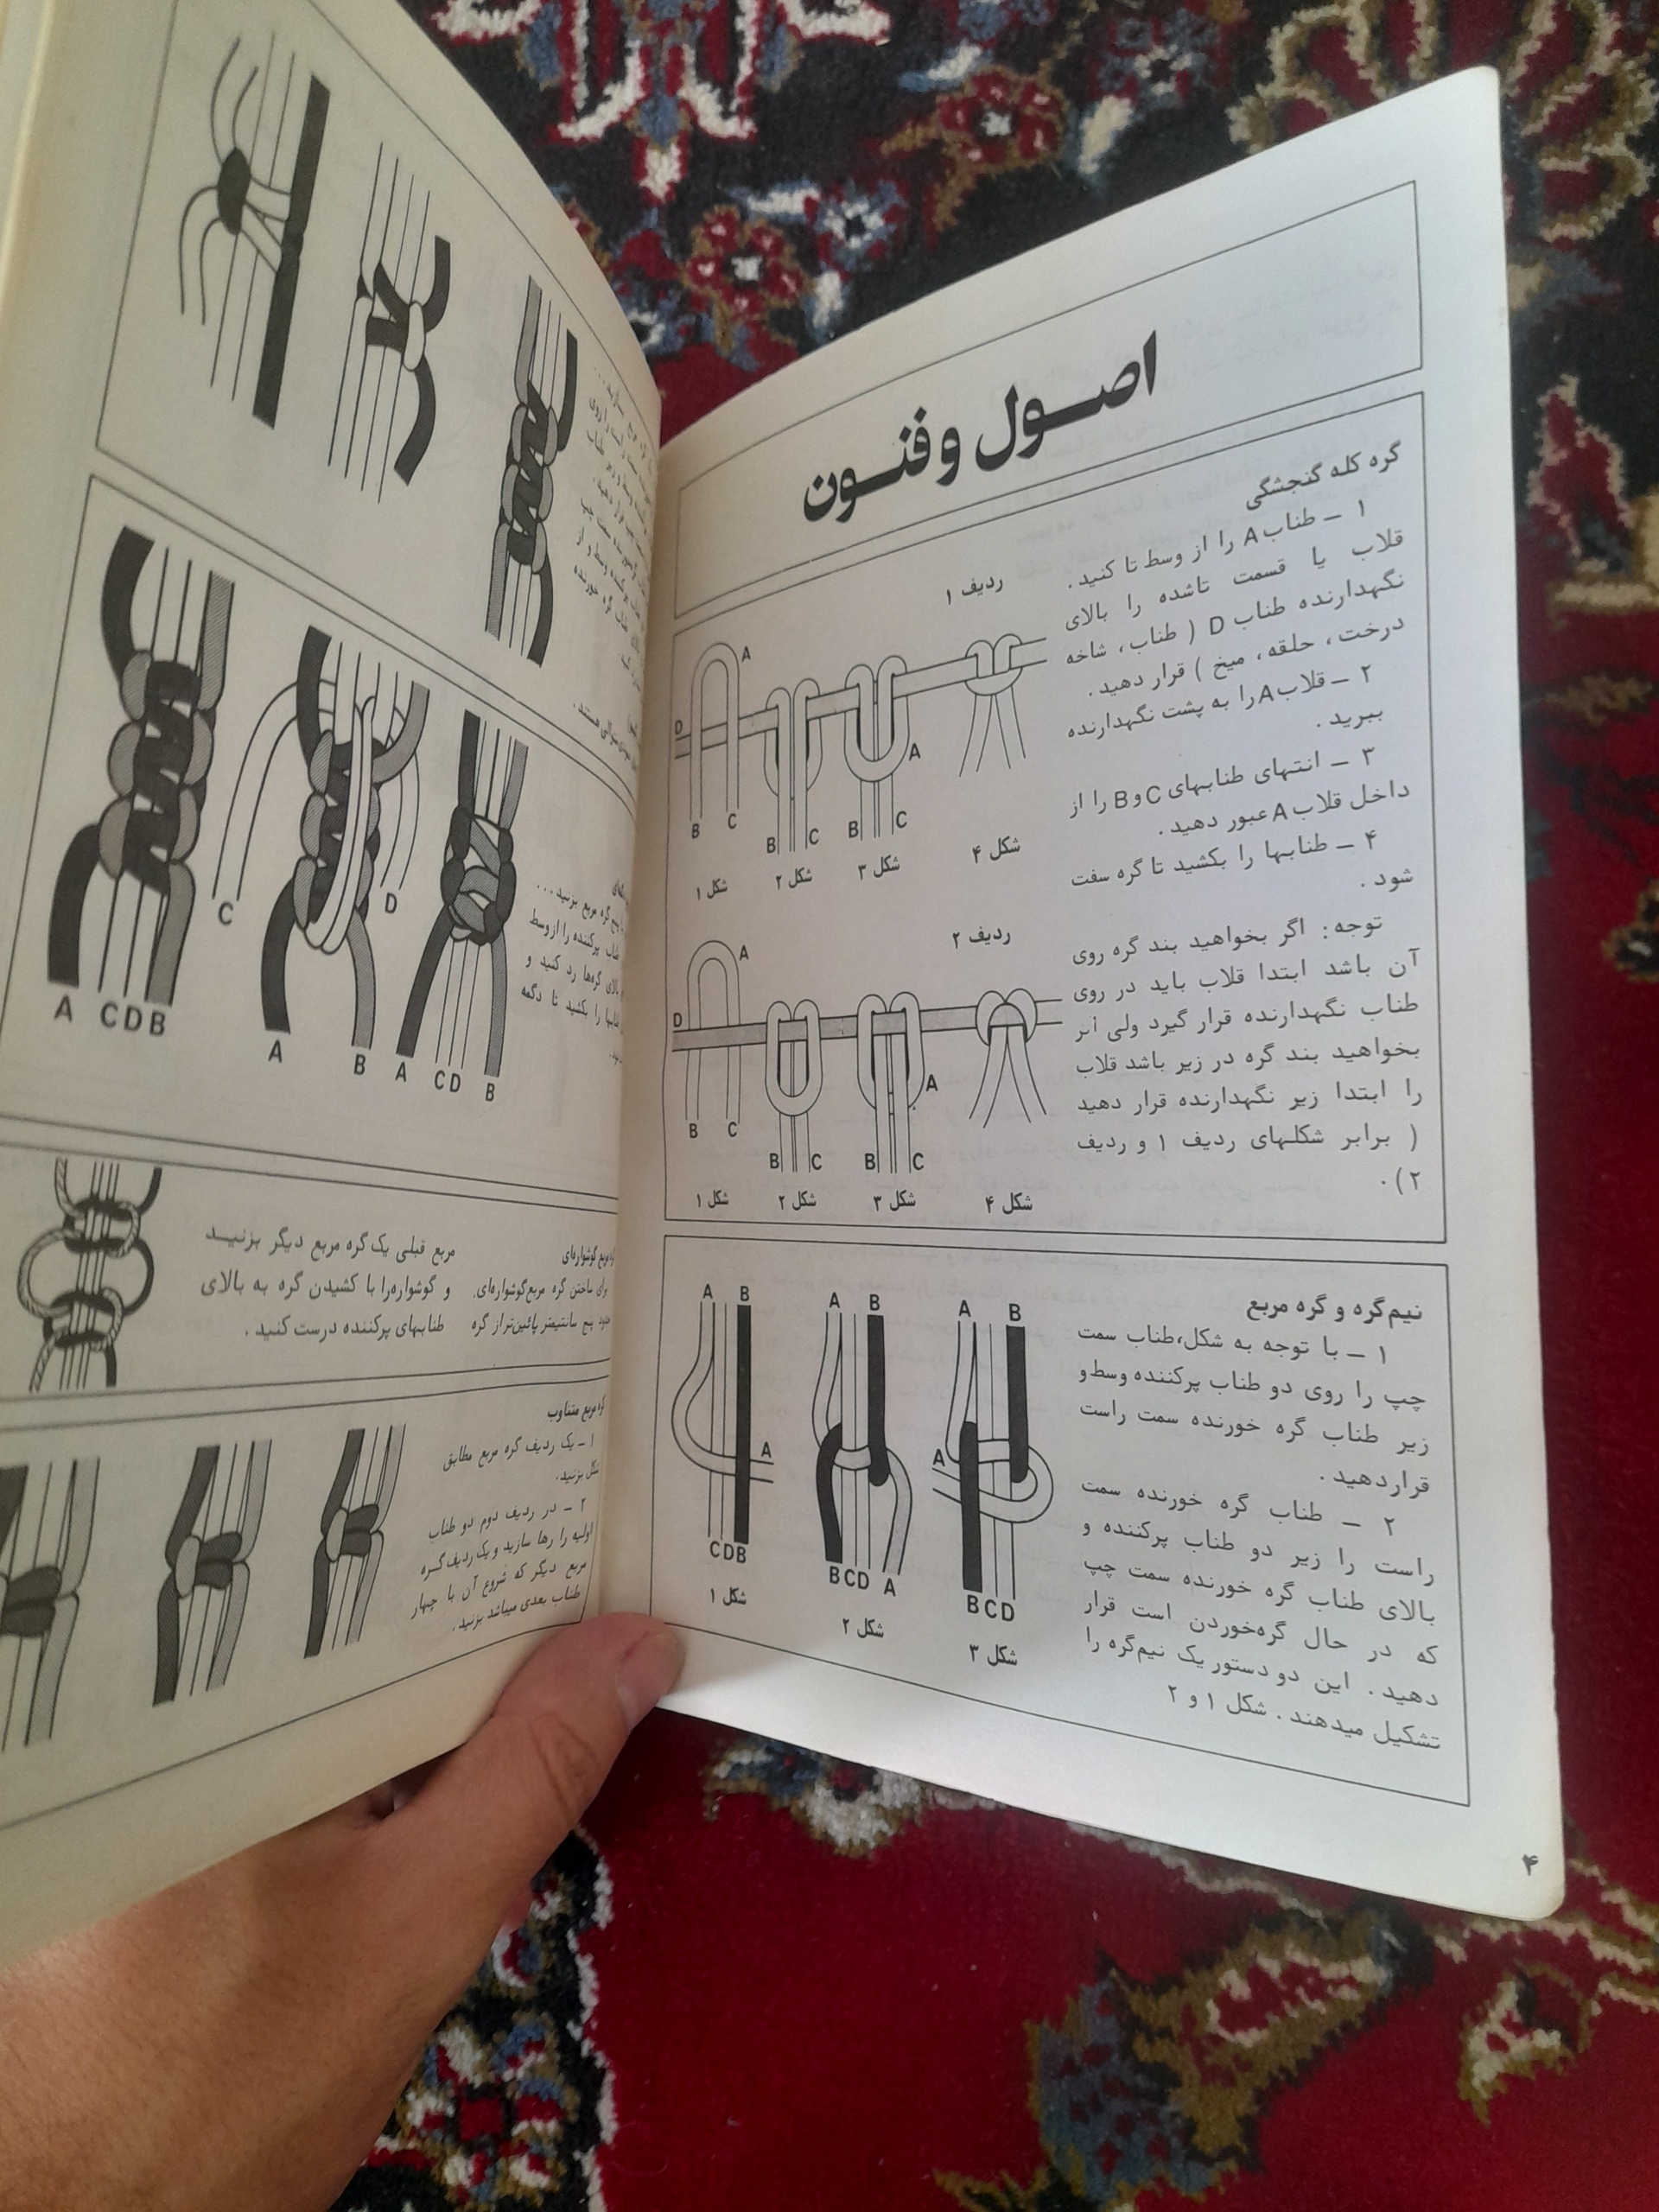 اصول و فنون
گره کله گنجشگی
۱ – طناب A را از وسط تا کنید.
قلاب یا قسمت تاشده را بالای
نگهدارنده طناب D ( طناب، شاخه
درخت، حلقه، میخ ) قرار دهید.
۲ – قلاب A را به پشت نگهدارنده
ببرید.
۳ – انتهای طنابهای C و B را از
داخل قلاب A عبور دهید.
۴ – طنابها را بکشید تا گره سفت
شود.
توجه: اگر بخواهید بند گره روی
آن باشد ابتدا قلاب باید در روی
طناب نگهدارنده قرار گیرد ولی اگر
بخواهید بند گره در زیر باشد قلاب
را ابتدا زیر نگهدارنده قرار دهید
( برابر شکلهای ردیف ۱ و ردیف
۲).
ردیف ۱
A
D
A
B C B C B C
شکل ۱ شکل ۲ شکل ۳ شکل ۴
ردیف ۲
A
D
A
B C B C B C
شکل ۱ شکل ۲ شکل ۳ شکل ۴
نیم‌گره و گره مربع
۱ – با توجه به شکل،طناب سمت
چپ را روی دو طناب پرکننده وسط و
زیر طناب گره خورنده سمت راست
قراردهید.
۲ – طناب گره خورنده سمت
راست را زیر دو طناب پرکننده و
بالای طناب گره خورنده سمت چپ
که در حال گره‌خوردن است قرار
دهید. این دو دستور یک نیم‌گره را
تشکیل میدهند. شکل ۱ و ۲
A B A B A B
A A
CDB BCD A BCD
شکل ۱ شکل ۲ شکل ۳
۴
را روی
زیر طناب
قرار دهید.
سمت چپ
وسط و از
گره خورنده
هستند.
گره مربع بزنید...
پرکننده را ازوسط
بالای گره‌ها رد کنید و
را بکشید تا دگمه
C D
A CDB A B A CD B
مربع گوشواره‌ای
ساختن گره مربع‌گوشواره‌ای،
پنج سانتیمتر پائین‌تر از گره
مربع قبلی یک گره مربع دیگر بزنید
و گوشواره‌را با کشیدن گره به بالای
طنابهای پرکننده درست کنید.
مربع متناوب
۱ – یک ردیف گره مربع مطابق
شکل بزنید.
۲ – در ردیف دوم دو طناب
اولیه را رها سازید و یک ردیف گره
مربع دیگر که شروع آن با چهار
طناب بعدی میباشد بزنید.